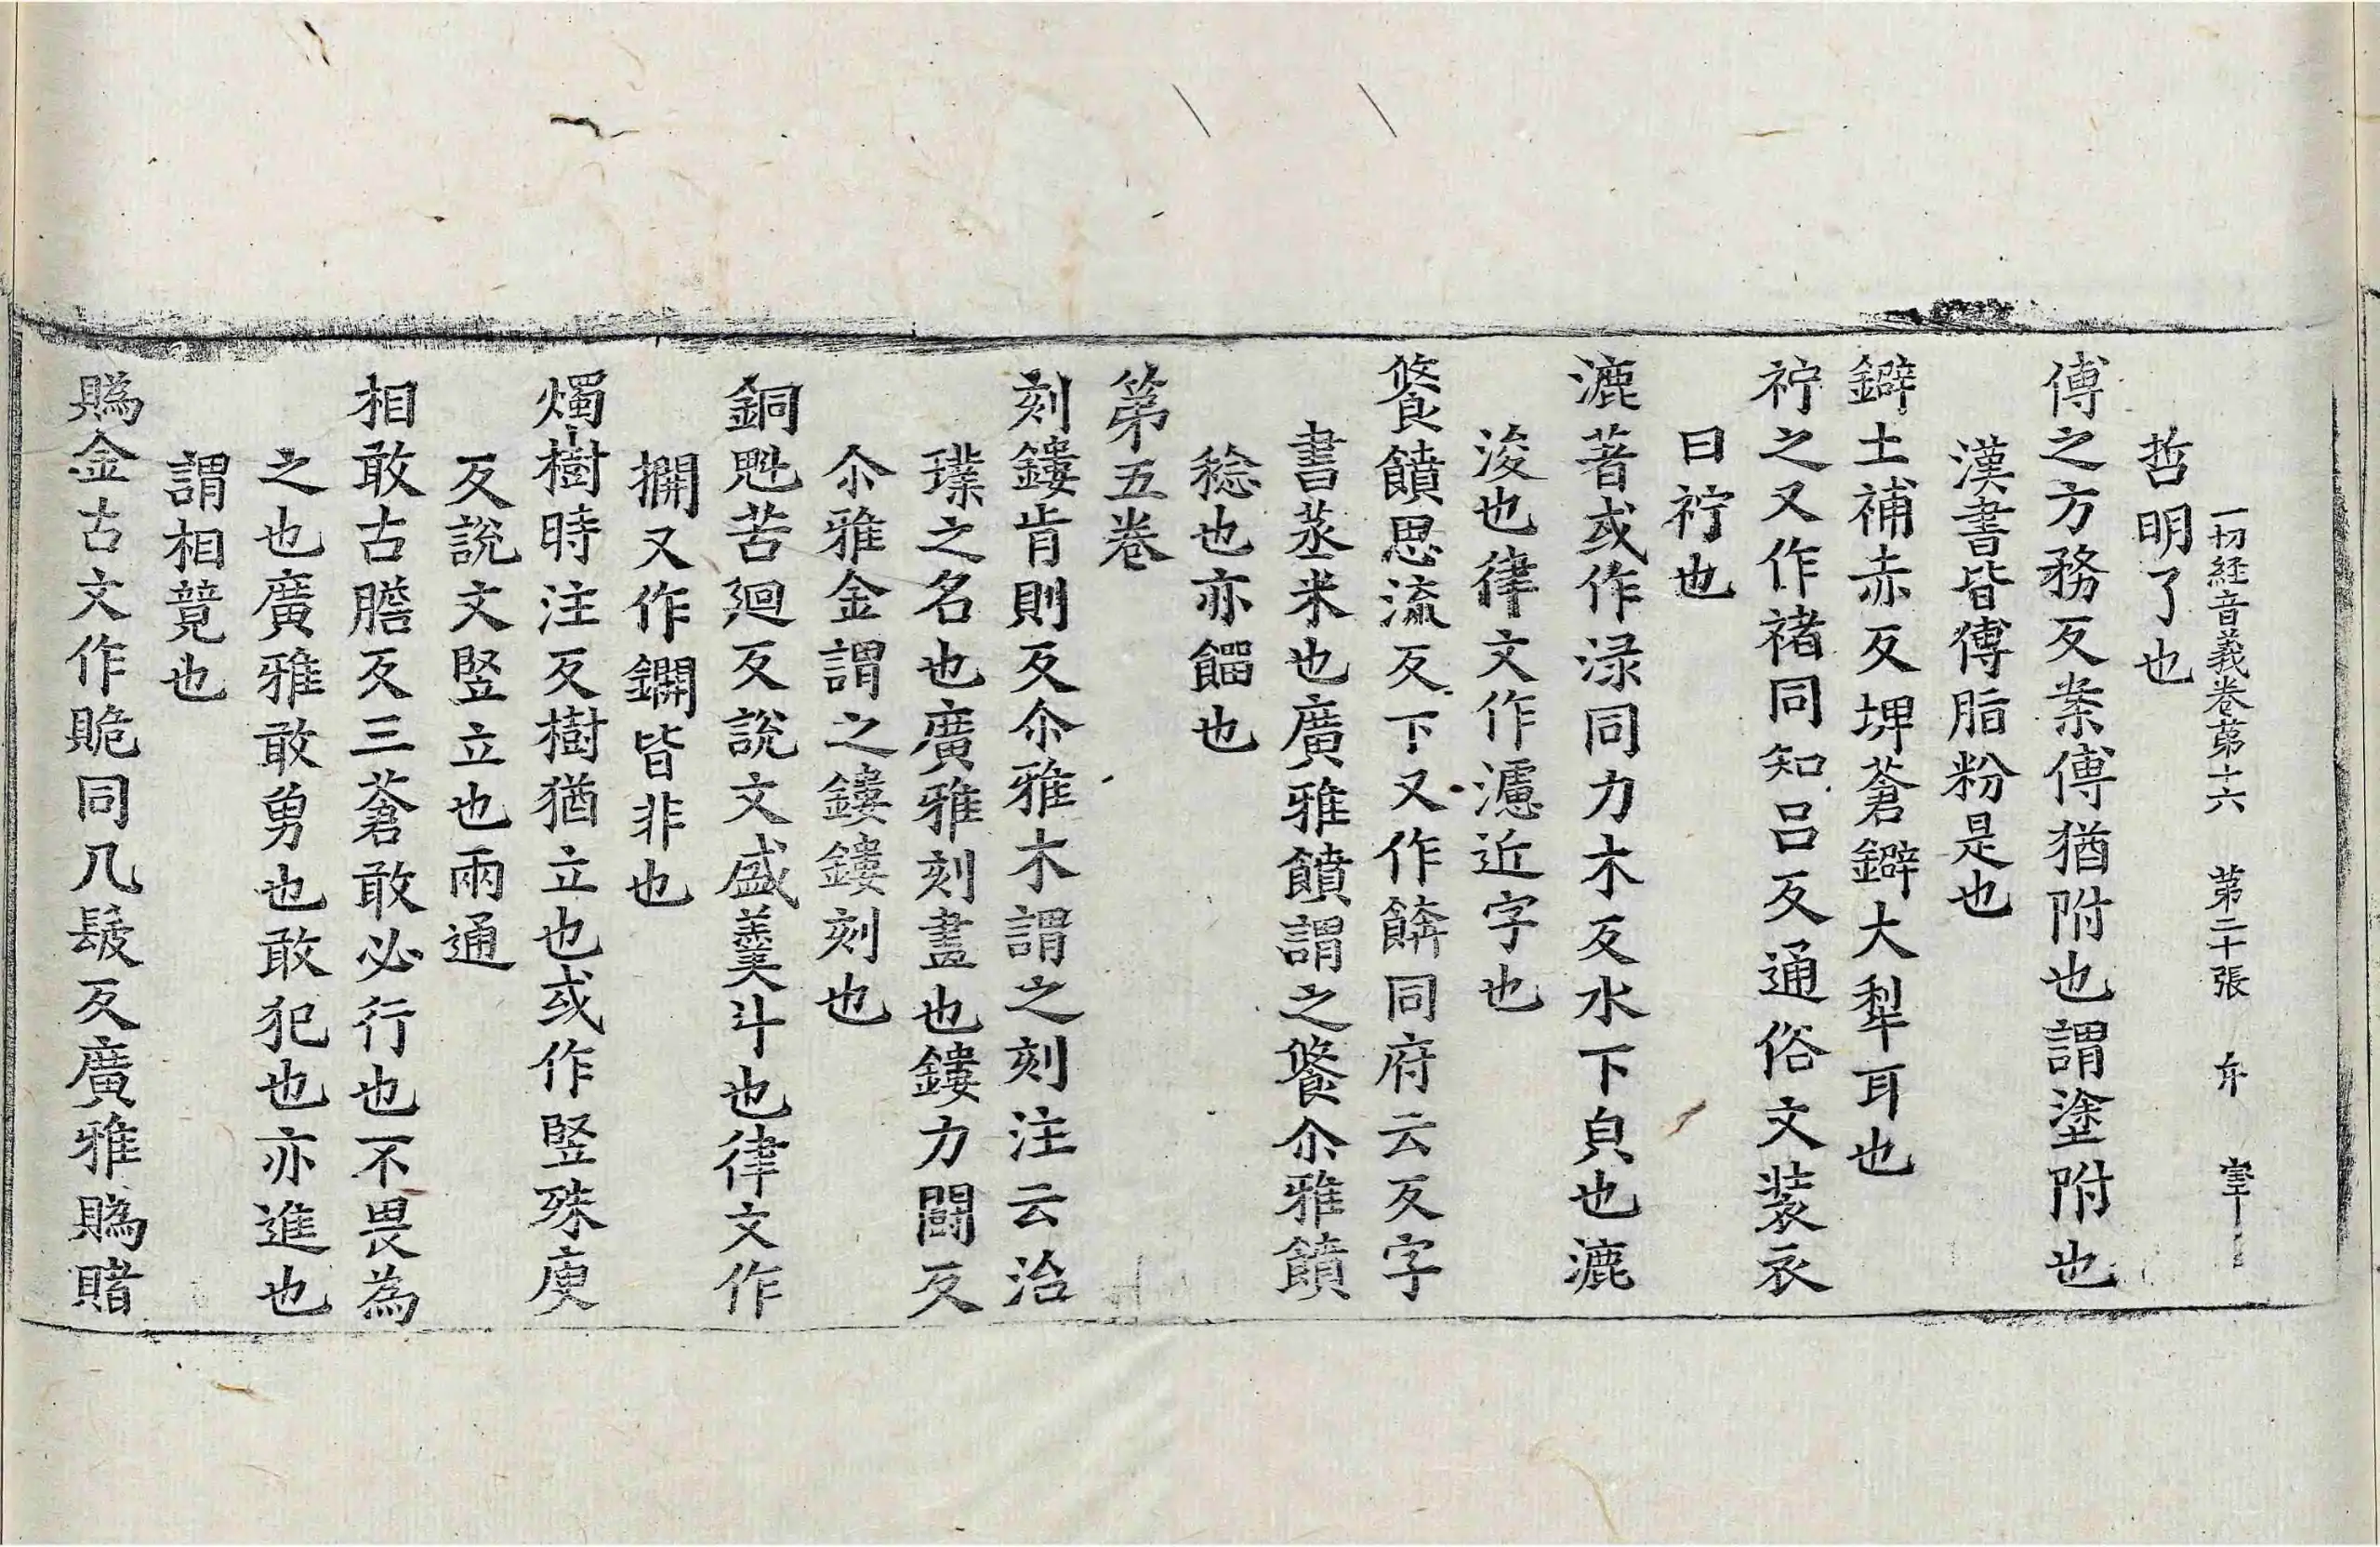 一切経音義卷苐十六 苐二十張 弁
哲明了也
傅之方務反案傅猶附也謂塗附也
漢書皆傅脂粉是也
鐴土補赤反埤蒼鐴大犁耳也
䘢之又作褚同知吕反通俗文装衣
曰䘢也
漉著或作渌同力木反水下皃也漉
浚也律文作濾近字也
餐饙思流反下又作餴同府云反字
書蒸米也廣雅饙謂之餐尒雅饙
稔也亦餾也
苐五卷
刻鏤肯則反尒雅木謂之刻注云治
璞之名也廣雅刻畫也鏤力鬪反
尒雅金謂之鏤鏤刻也
銅魁苦廻反說文盛羹斗也律文作
㩦又作鐦皆非也
燭樹時注反樹猶立也或作竪殊庾
反說文竪立也兩通
相敢古膽反三蒼敢必行也不畏為
之也廣雅敢勇也敢犯也亦進也
謂相竟也
賭金古文作賟同几髲反廣雅䞈賭